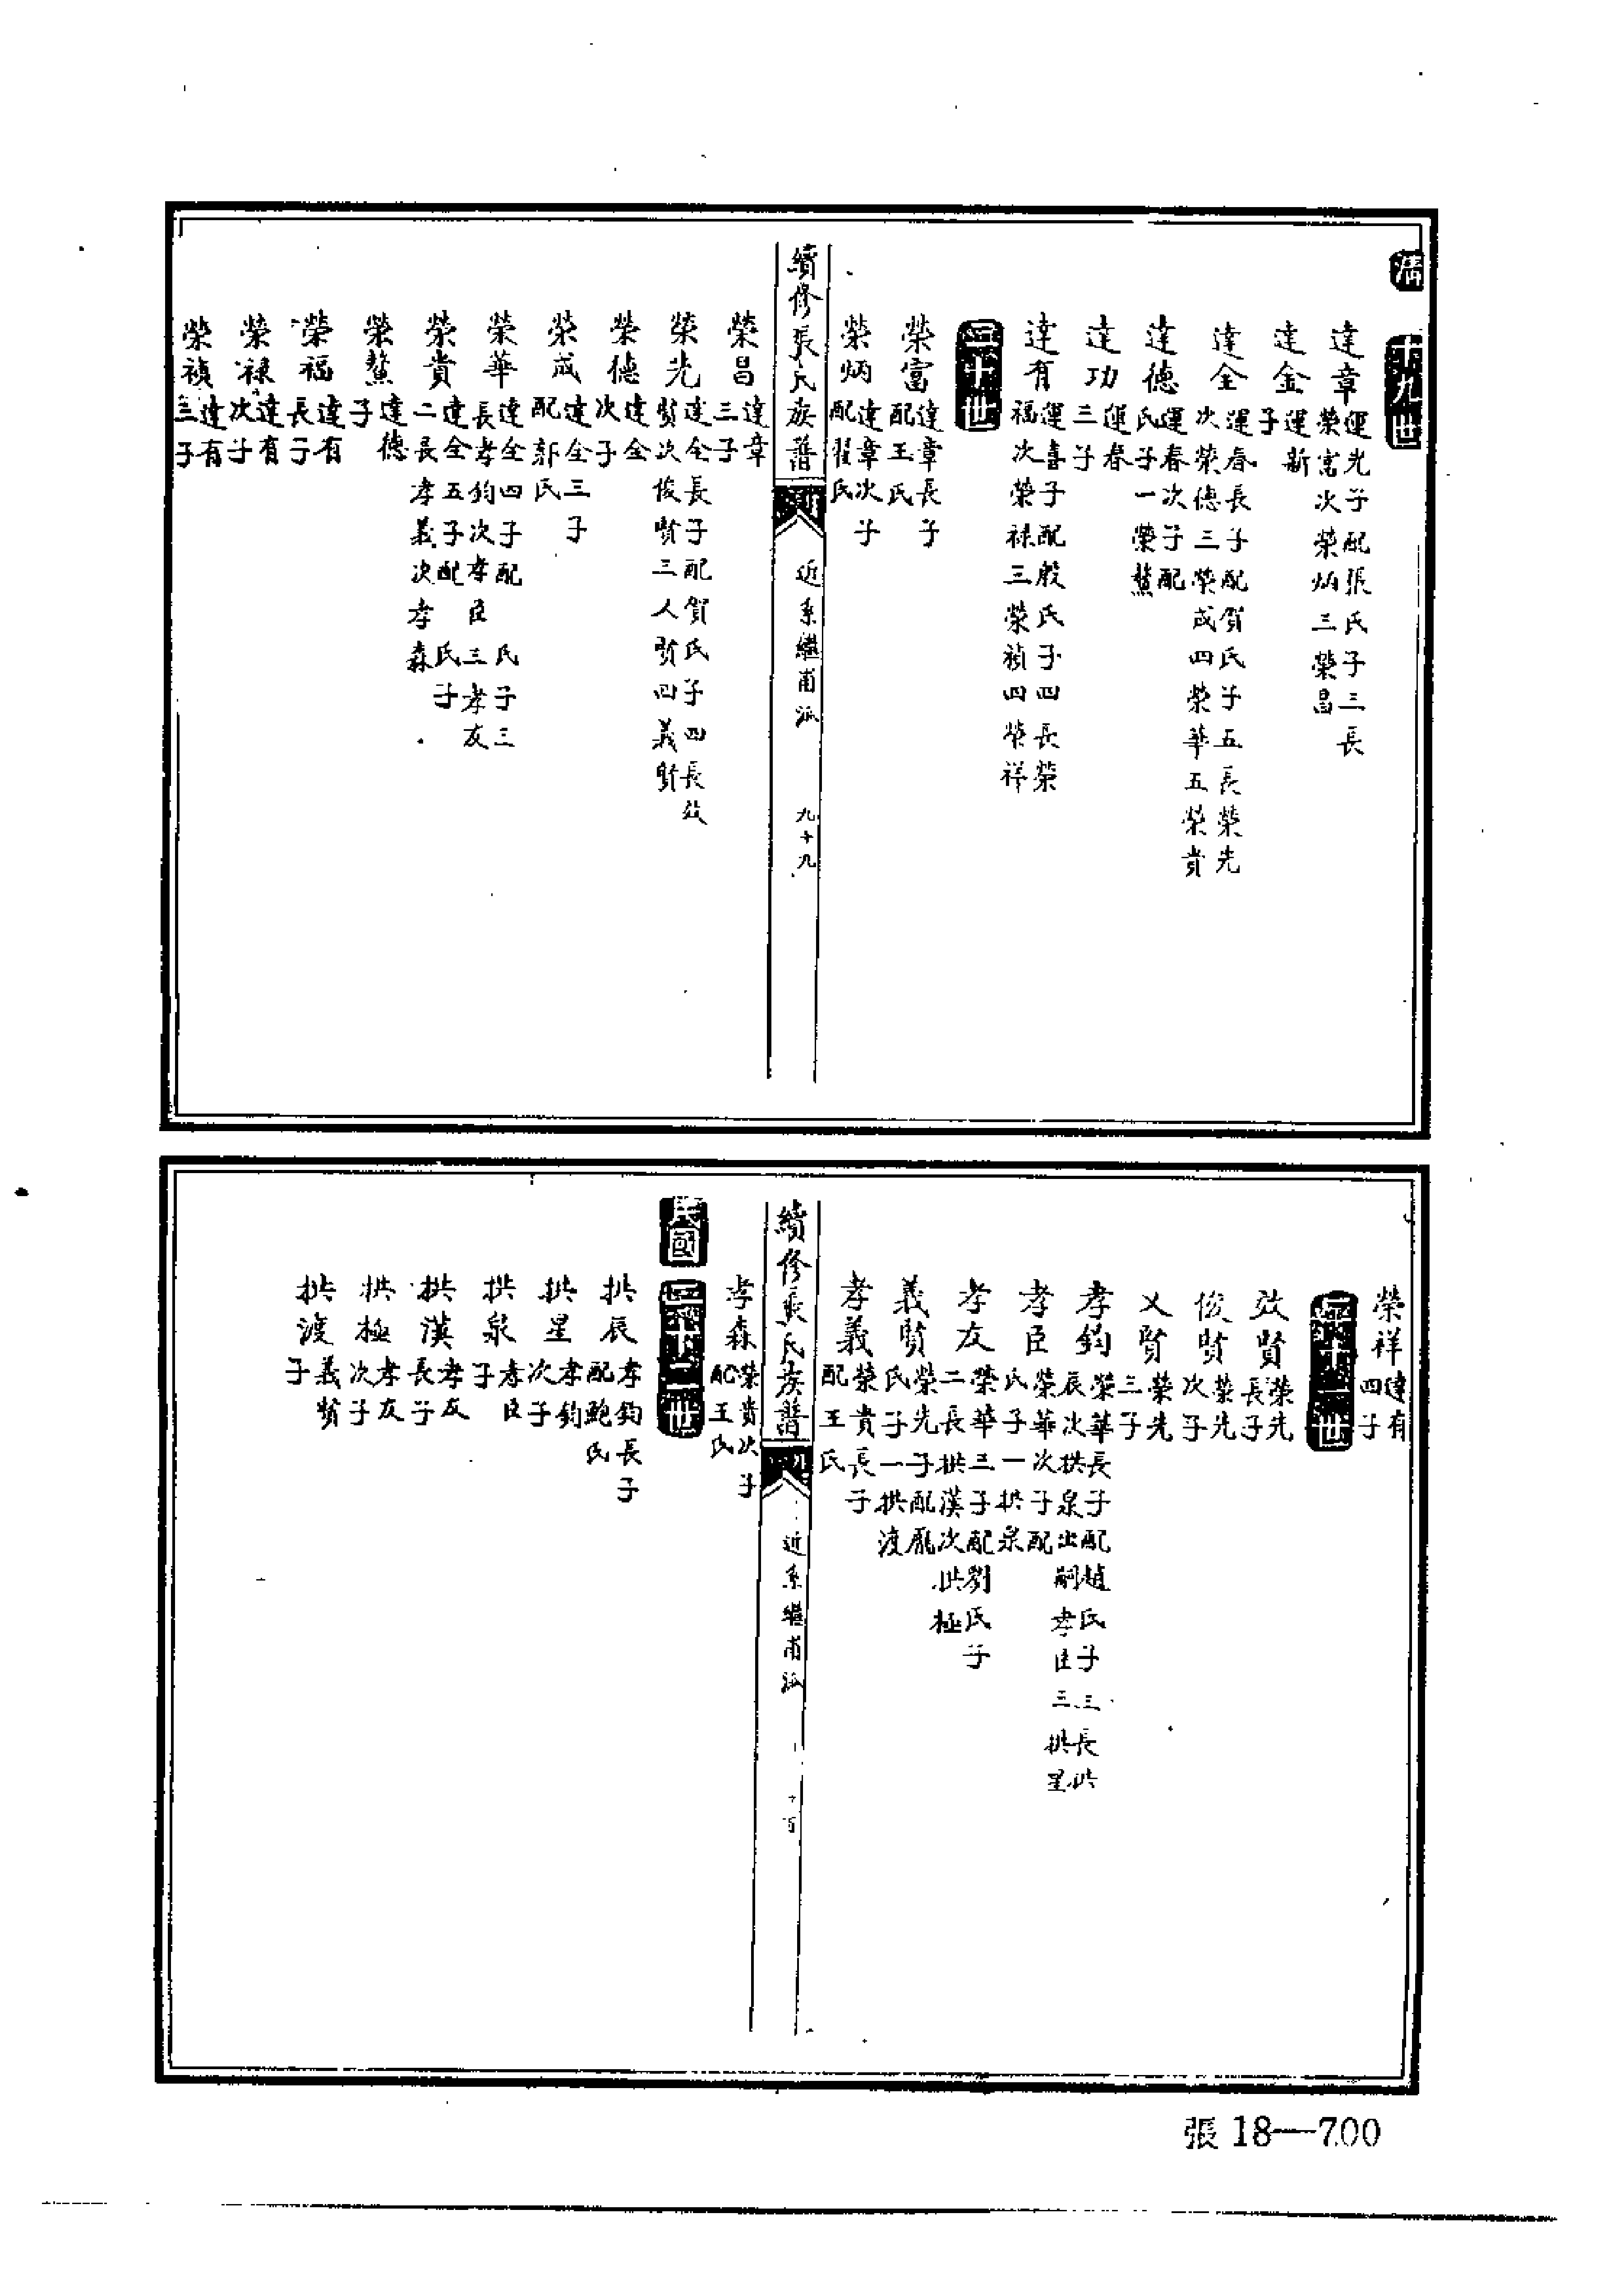 清 十九世
達章 運光子配張氏子三長榮富次榮炳三榮昌
達金 運新子
達全 運春長子配賀氏子五長榮光次榮德三榮成四榮華五榮貴
達德 運春次子配氏子一榮鰲
達功 運春三子
達有 運喜子配殷氏子四長榮福次榮禄三榮禎四榮祥
二十世
榮富 達章長子配王氏
榮炳 達章次子配翟氏
續修張氏族譜 近系繼甫派 九十九
榮昌 達章三子
榮光 達全長子配賀氏子四長效賢次俊賢三人賢四義賢
榮德 達全次子
榮成 達全三子配郭氏
榮華 達全四子配 氏子三長孝鈞次孝臣三孝友
榮貴 達全五子配 氏子二長孝義次孝森
榮鰲 達德子
榮福 達有長子
榮禄 達有次子
榮禎 達有三子
榮祥 達有四子
二十一世
效賢 榮光長子
俊賢 榮光次子
乂賢 榮光三子
孝鈞 榮華長子配趙氏子三長拱辰次拱泉出嗣孝臣三拱星
孝臣 榮華次子配氏子一拱泉
孝友 榮華三子配劉氏子二長拱漢次拱極
義賢 榮光子配龐氏子一拱渡
孝義 榮貴長子配王氏
續修張氏族譜 近系繼甫派 一百
孝森 榮貴次子配王氏
民國 二十二世
拱辰 孝鈞長子配鮑氏
拱星 孝鈞次子
拱泉 孝臣子
拱漢 孝友長子
拱極 孝友次子
拱渡 義賢子
張 18—700